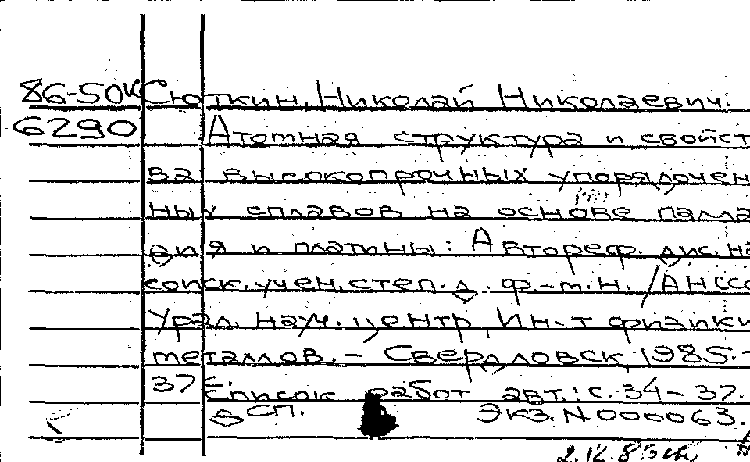 86-50к Сюткин, Николай Николаевич.
6290 Атомная структура и свойст
ва высокопрочных упорядочен
ных сплавов на основе палла
дия и платины: Автореф. дис. на
соиск. учен. степ. д. ф.-м.н. /АНССС
Урал. науч. центр, Ин-т физики
металлов. - Свердловск, 1985. -
37 с. Список работ авт.: с. 34-37.
ДСП. Экз. N 000063.
2.12.85